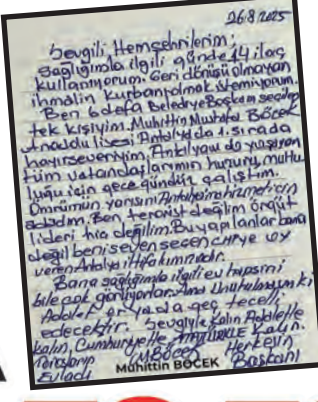 26.8.2025
Sevgili Hemşehrilerim;
Sağlığımla ilgili günde 14 ilaç
kullanıyorum. Geri dönüşü olmayan
ihmalin kurbanı olmak istemiyorum.
Ben 6 defa Belediye Başkanı seçilen
tek kişiyim. Muhittin Mustafa BÖCEK
Anadolu lisesi Antalya'da 1. sırada
hayırseveriyim. Antalya'da yaşayan
tüm vatandaşlarımın huzuru, mutlu
luğu için gece gündüz çalıştım.
Ömrümün yarısını Antalya'mıza hizmet için
adadım. Ben terörist değilim örgüt
lideri hiç değilim. Bu yapılanlar bana
değil beni seven seçen CHP'ye oy
veren Antalya ittifakımınadır.
Bana sağlığımla ilgili ev hapsini
bile çok görüyorlar. Ama Unutulmasın ki
Adalet er ya da geç tecelli
edecektir. Sevgiyle Kalın Adaletle
Kalın, Cumhuriyetle, Kalın.
Torosların Evladı
M BÖCEK
Herkesin Başkanı
Muhittin BÖCEK